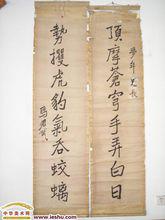 夢年兄長
頂摩蒼穹手弄白日
勢攫虎豹氣吞蛟螭
中华美术网
www.ieshu.com